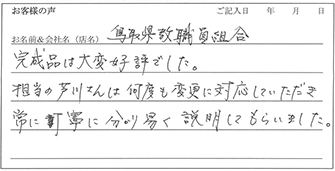 お客様の声　ご記入日　年　月　日
お名前&会社名（店名）　鳥取県教職員組合
完成品は大変好評でした。
担当の芦川さんは何度も変更に対応していただき
常に丁寧に分かり易く説明してもらいました。